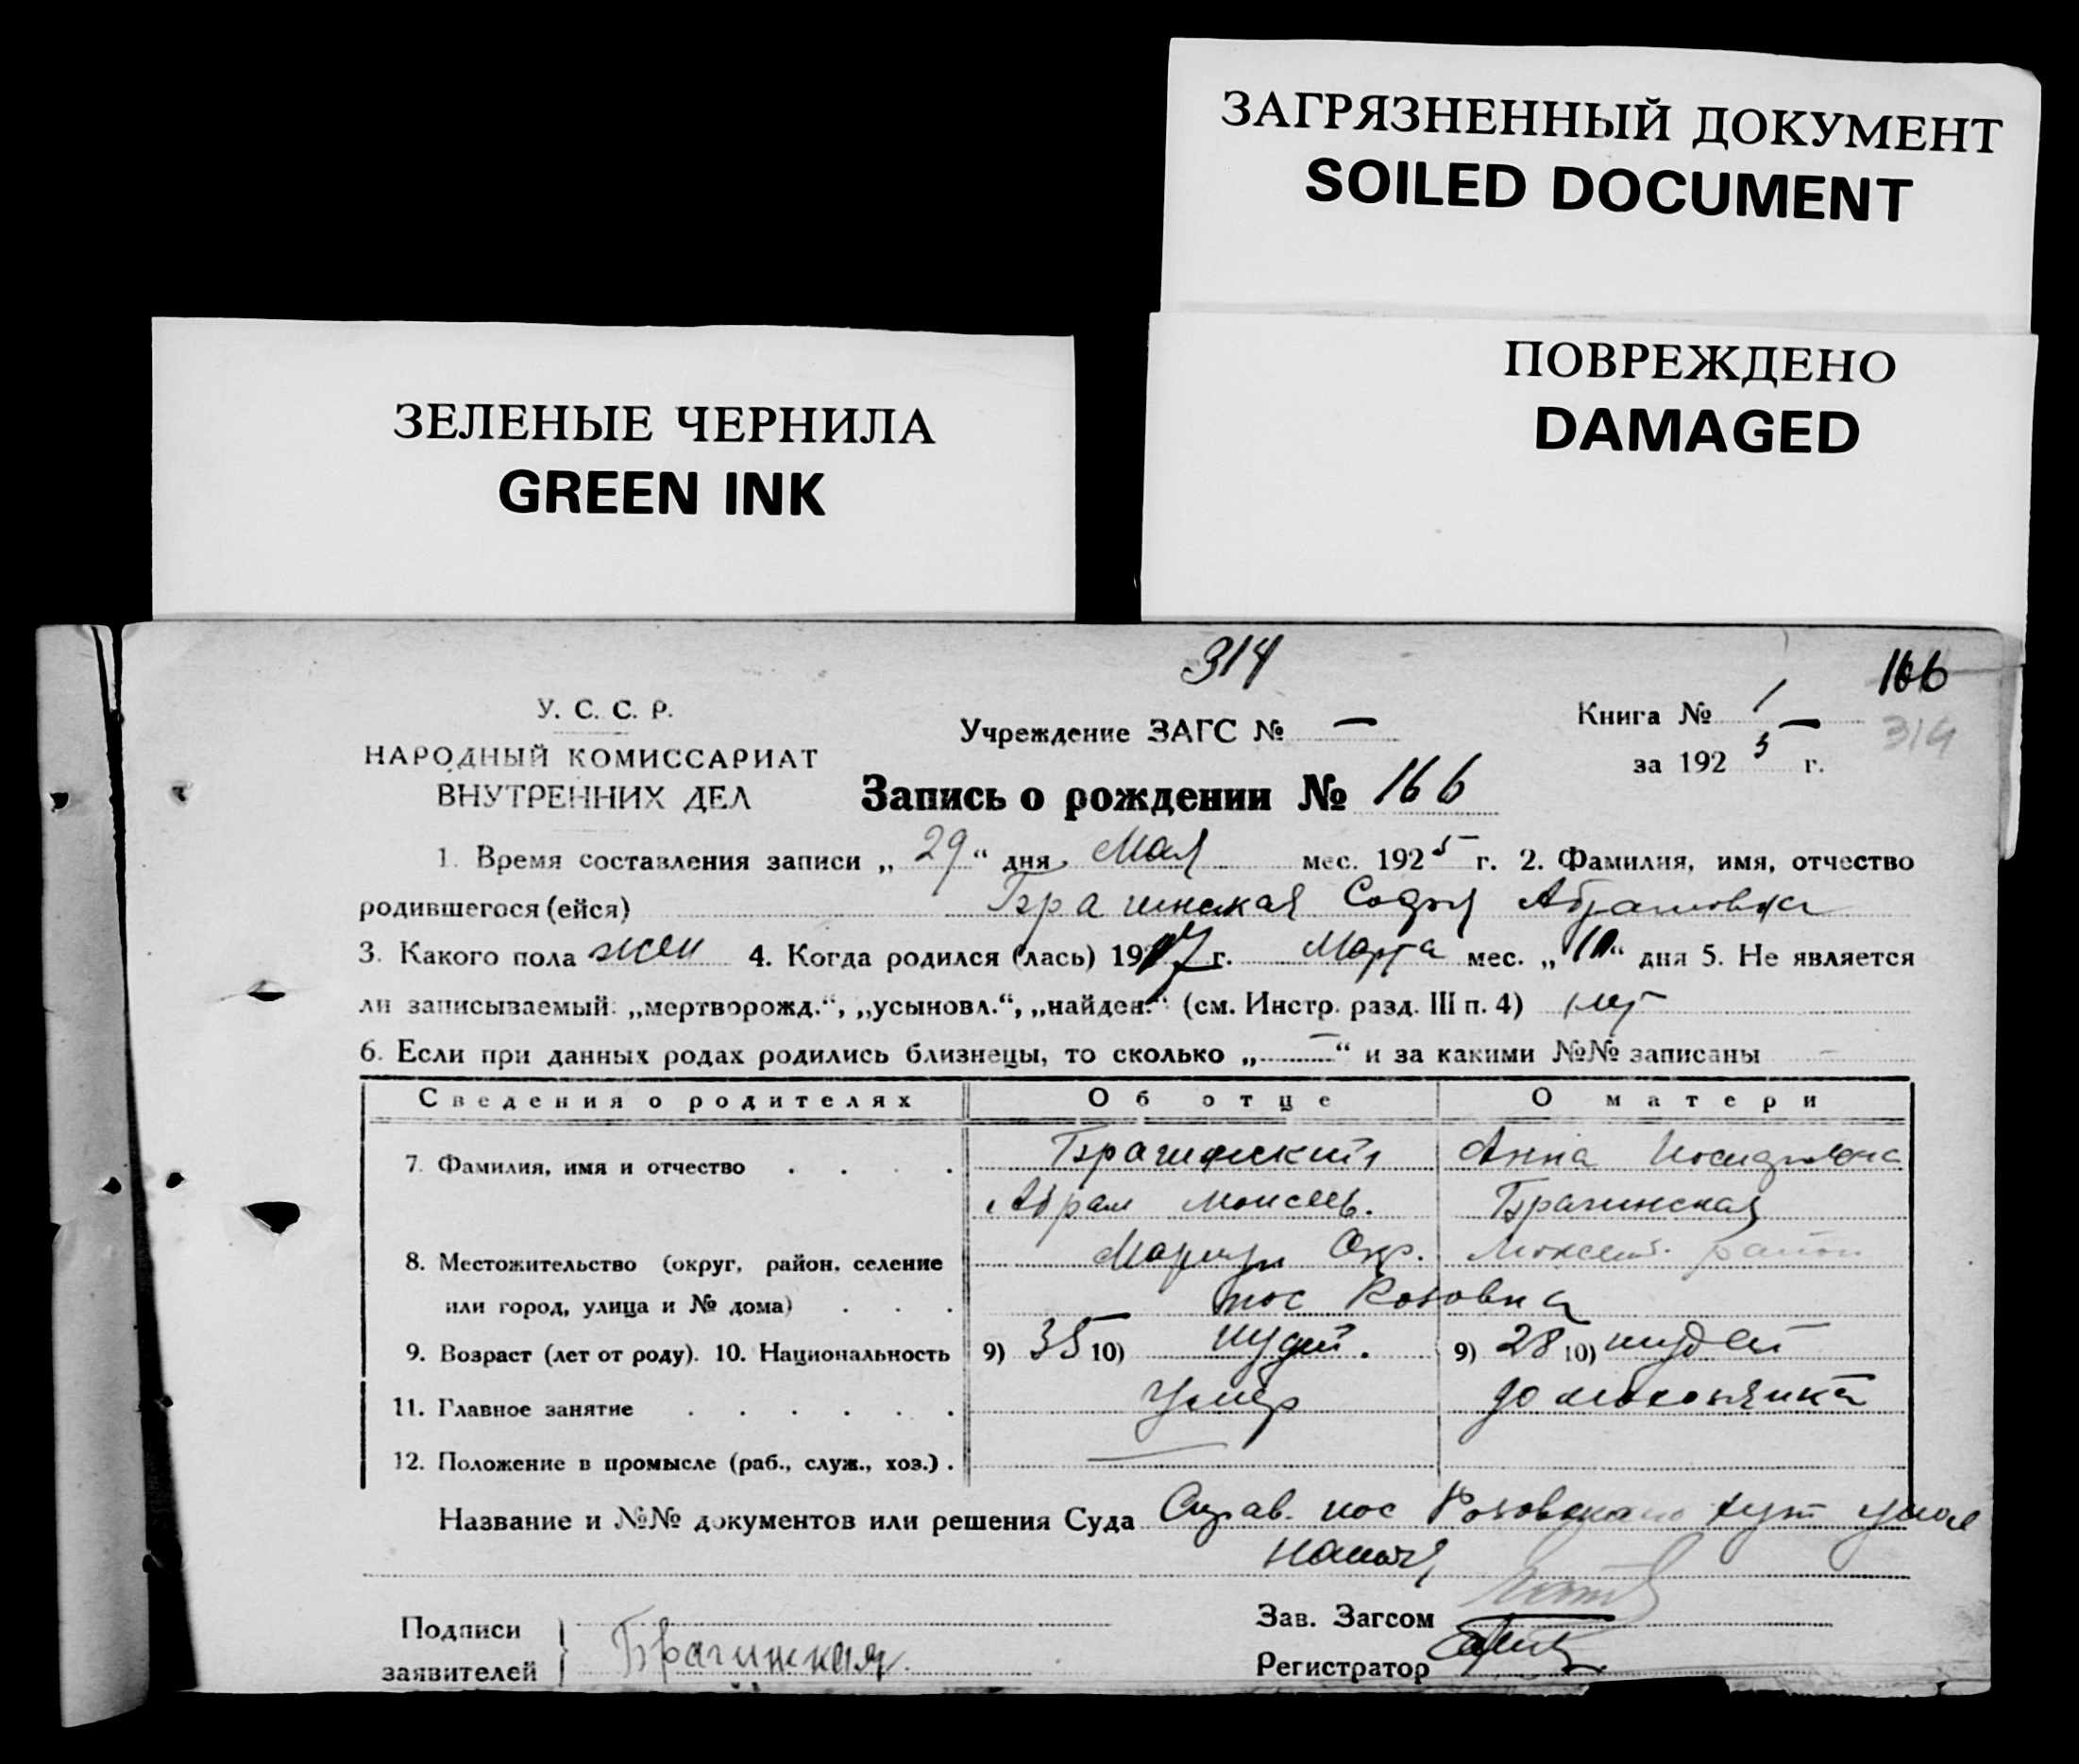 ЗАГРЯЗНЕННЫЙ ДОКУМЕНТ
SOILED DOCUMENT
ПОВРЕЖДЕНО
DAMAGED
ЗЕЛЕНЫЕ ЧЕРНИЛА
GREEN INK
314
166
У. С. С. Р.
НАРОДНЫЙ КОМИССАРИАТ
ВНУТРЕННИХ ДЕЛ
Учреждение ЗАГС № —
Книга № 1
314
за 1925 г.
Запись о рождении № 166
1. Время составления записи „29“ дня Мая мес. 1925 г. 2. Фамилия, имя, отчество
родившегося (ейся) Брагинская Софья Абрамовна
3. Какого пола жен 4. Когда родился (лась) 1917 г. Марта мес. „10“ дня 5. Не является
ли записываемый: „мертворожд.“, „усыновл.“, „найден.“ (см. Инстр. разд. III п. 4) нет
6. Если при данных родах родились близнецы, то сколько „—“ и за какими №№ записаны —
Сведения о родителях Об отце О матери
7. Фамилия, имя и отчество Брагинский Анна
Абрам Моисеев. Брагинская
8. Местожительство (округ, район, селение Мариуп Окр. район
или город, улица и № дома) пос Розовка
9. Возраст (лет от роду). 10. Национальность 9) 35 10) иудей. 9) 28 10) иудей
11. Главное занятие Умер домохозяйка
12. Положение в промысле (раб., служ., хоз.) —
Название и №№ документов или решения Суда Справ. пос Розовского
Подписи
заявителей Брагинская
Зав. Загсом
Регистратор